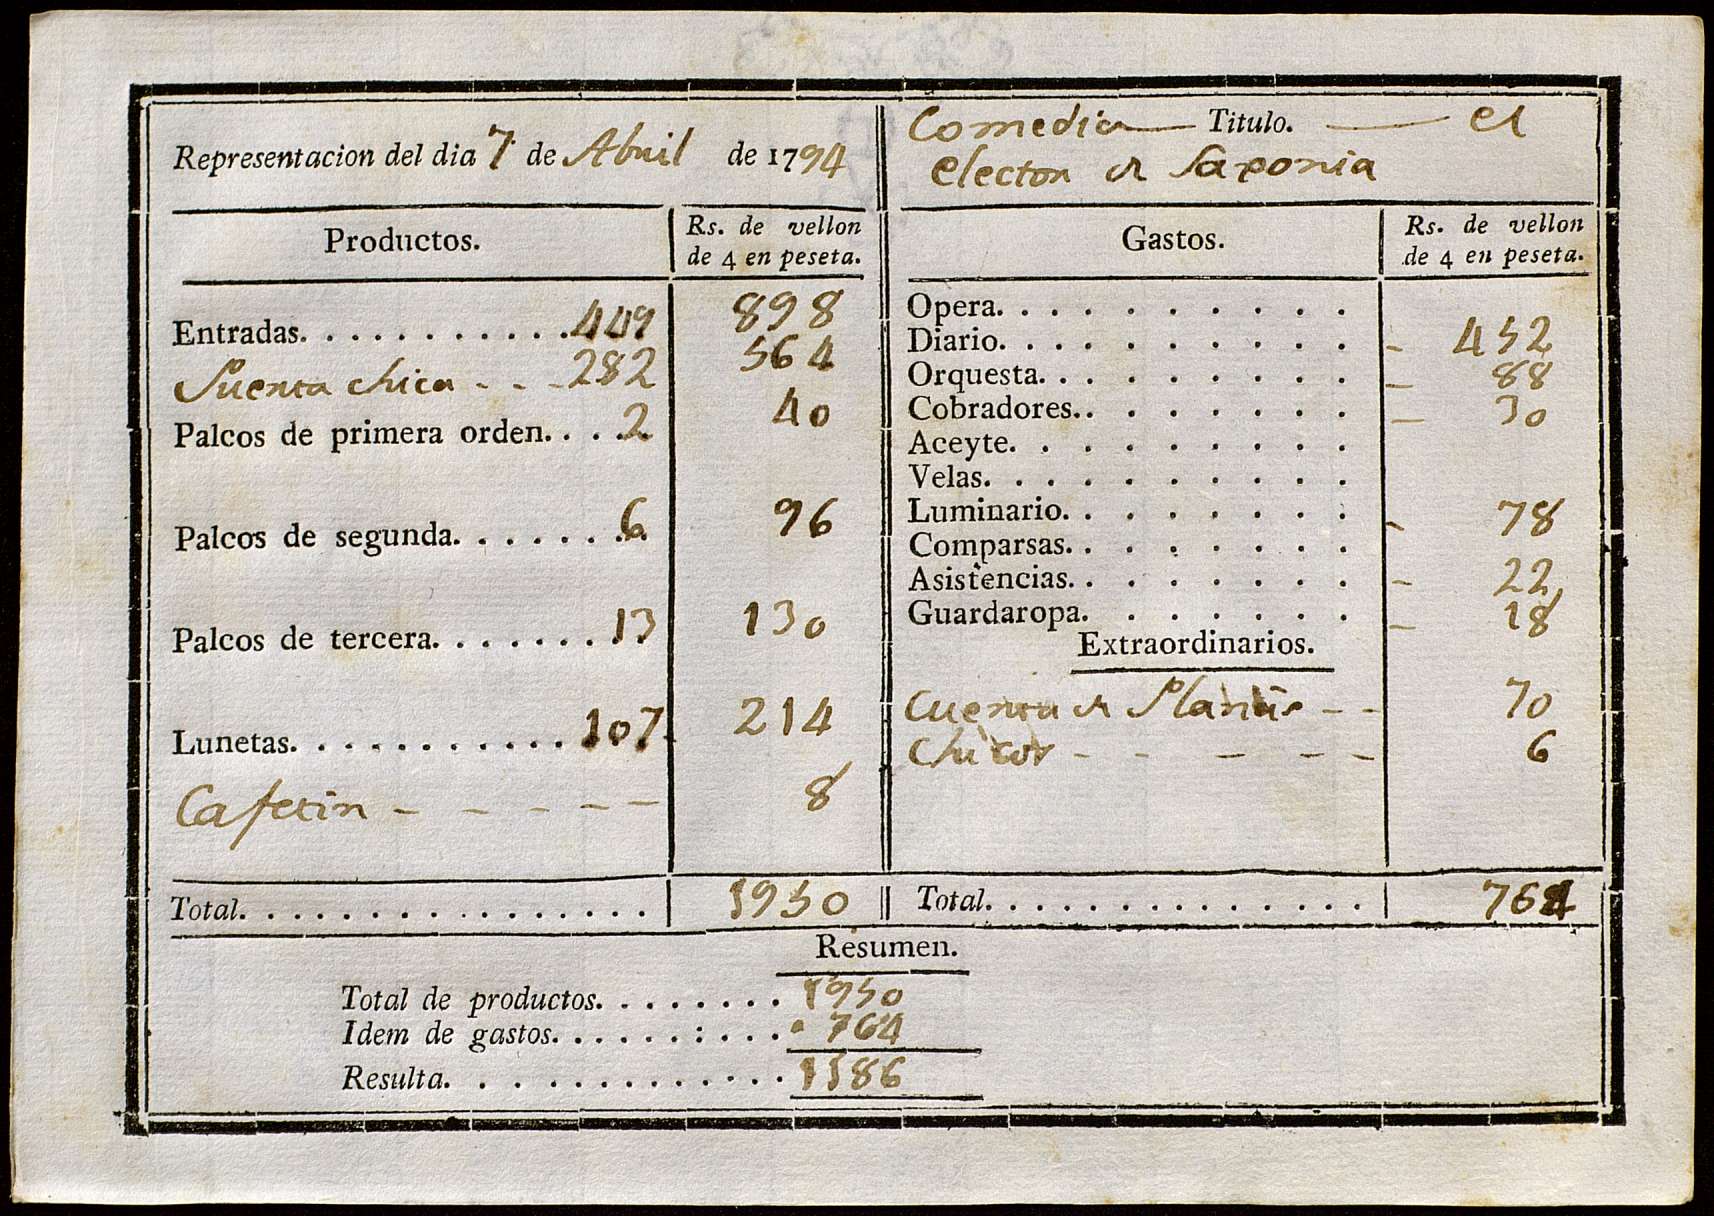 Representacion del dia 7 de Abril de 1794
Comedia Titulo. el
elector de Saxonia
Productos. Rs. de vellon
de 4 en peseta.
Entradas. 449 898
Puerta chica - - - 282 564
Palcos de primera orden. 2 40
Palcos de segunda. 6 96
Palcos de tercera. 13 130
Lunetas. 107 214
Cafetin - - - - - 8
Total. 1950
Gastos. Rs. de vellon
de 4 en peseta.
Opera.
Diario. - 452
Orquesta. - 88
Cobradores. - 30
Aceyte.
Velas.
Luminario. - 78
Comparsas.
Asistencias. - 22
Guardaropa. - 18
Extraordinarios.
Cuenta de - - 70
Chicos - - - - - 6
Total. 764
Resumen.
Total de productos. 1950
Idem de gastos. 764
Resulta. 1186